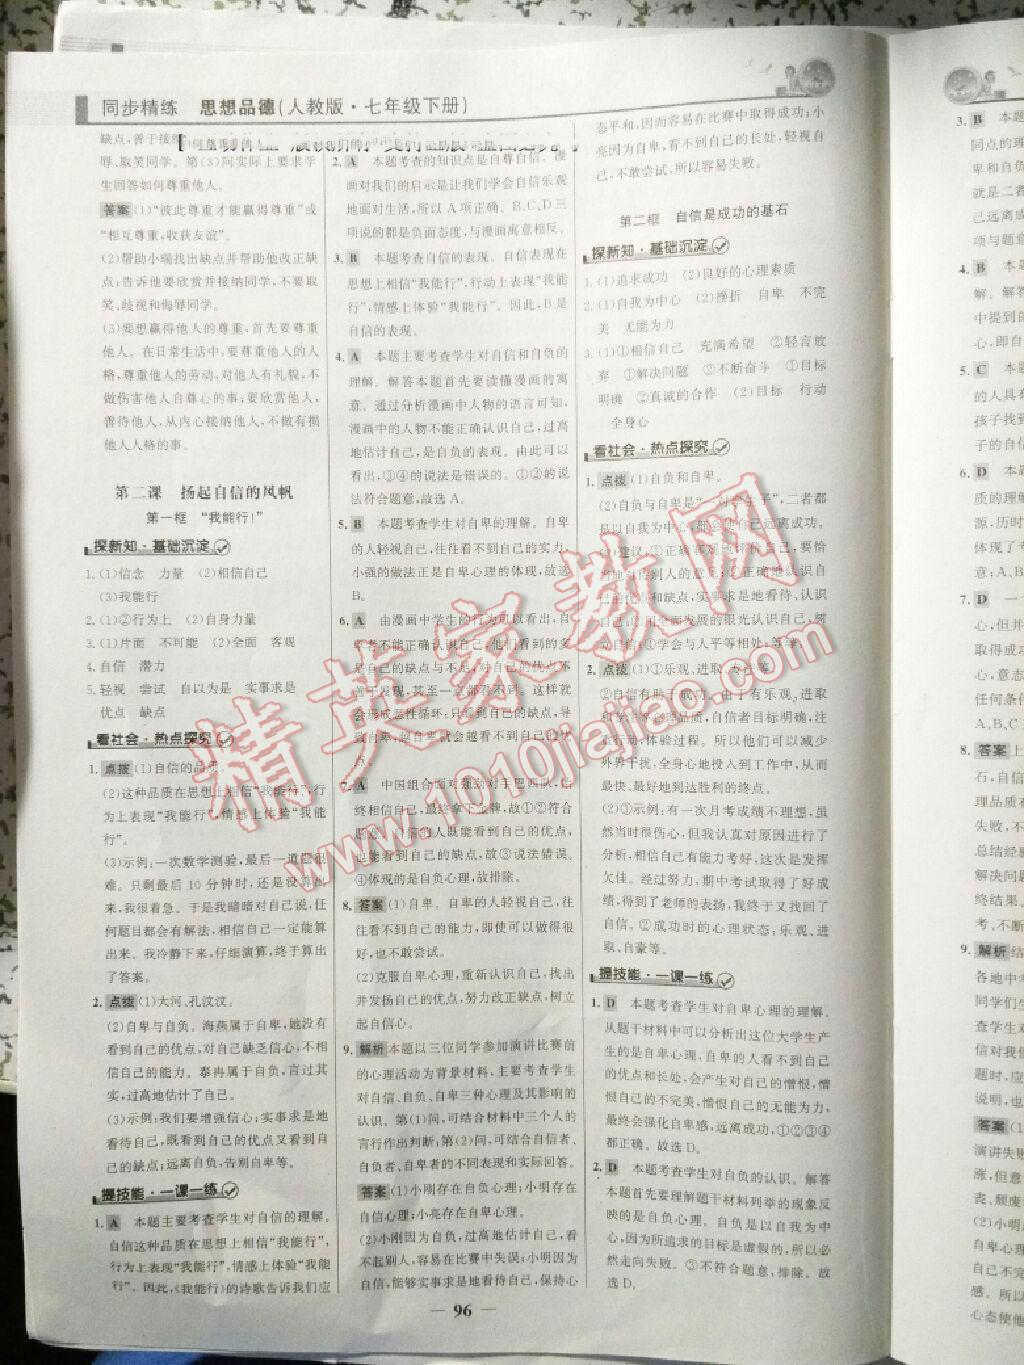 同步精练 思想品德(人教版·七年级下册)
缺点,善于接纳
辱、取笑同学。第(3)问实际上要求学
生回答如何尊重他人。
答案 (1)“彼此尊重才能赢得尊重”或
“相互尊重,收获友谊”。
(2)帮助小瑞找出缺点并帮助他改正缺
点;告诉他要欣赏并接纳同学,不要取
笑、歧视和侮辱同学。
(3)要想赢得他人的尊重,首先要尊重
他人。在日常生活中,要尊重他人的人
格,尊重他人的劳动,对他人有礼貌,不
做伤害他人自尊心的事;要欣赏他人,
善待他人,从内心接纳他人,不做有损
他人人格的事。
第二课 扬起自信的风帆
第一框 “我能行!”
探新知·基础沉淀
1.(1)信念 力量 (2)相信自己
(3)我能行
2.(1)②行为上 (2)自身力量
3.(1)片面 不可能 (2)全面 客观
4.自信 潜力
5.轻视 尝试 自以为是 实事求是
优点 缺点
看社会·热点探究
1. 点拨 (1)自信的品质。
(2)这种品质在思想上相信“我能行”,行
为上表现“我能行”,情感上体验“我能
行”。
(3)示例:一次数学测验,最后一道题很
难。只剩最后10分钟时,还是没有算出
来,我很着急。于是我暗暗对自己说,任
何题目都会有解法,相信自己一定能算
出来。我冷静下来,仔细演算,终于算出
了答案。
2. 点拨 (1)大河、孔汶汶。
(2)自卑与自负。海燕属于自卑,她没有
看到自己的优点,对自己缺乏信心,不相
信自己的能力。泰冉属于自负,言过其
实,过高地估计了自己。
(3)示例:我们要增强信心;实事求是地
看待自己,既看到自己的优点又看到自
己的缺点;远离自负,告别自卑等。
提技能·一课一练
1. A 本题主要考查学生对自信的理解。
自信这种品质在思想上相信“我能行”,
行为上表现“我能行”,情感上体验“我能
行”。因此,《我能行》的诗歌告诉我们应
2. A 本题考查的知识点是自信乐观。漫
画对我们的启示是让我们学会自信乐观
地面对生活,所以A项正确。B、C、D三
项说的都是负面态度,与漫画寓意相反。
3. B 本题考查自信的表现。自信表现在
思想上相信“我能行”,行动上表现“我能
行”,情感上体验“我能行”。因此,B是
自信的表现。
4. A 本题主要考查学生对自信和自负的
理解。解答本题首先要读懂漫画的寓
意。通过分析漫画中人物的语言可知,
漫画中的人物不能正确认识自己,过高
地估计自己,是自负的表现。由此可以
看出,③④的说法是错误的。①②的说
法符合题意,故选A。
5. B 本题考查学生对自卑的理解。自卑
的人轻视自己,往往看不到自己的实力。
小强的做法正是自卑心理的体现,故选
B。
6. A 由漫画中学生的行为可以看出,自
卑者不能正确认识自己,他们看到的多
是自己的缺点与不足,对自己的优点不
善于发现,甚至一点都看不到。这样就
会形成恶性循环:只看到自己的缺点,导
致自卑,越自卑就会越看不到自己的优
点。
7. A 中国组合面对强劲对手巴西队,始
终相信自己,最终拿下金牌,故①②符合
题意。自信的人既能看到自己的优点,
也能看到自己的缺点,故③说法错误。
④体现的是自负心理,故排除。
8. 答案 (1)自卑。自卑的人轻视自己,往
往看不到自己的能力,即使可以做得很
好,也不敢尝试。
(2)克服自卑心理,重新认识自己,找出
并发扬自己的优点,努力改正缺点,树立
起自信心。
9. 解析 本题以三位同学参加演讲比赛前
的心理活动为背景材料,主要考查学生
对自信、自负、自卑三种心理及其影响的
认识。第(1)问,可结合材料中三个人的
言行作出判断;第(2)问,可结合自信者、
自负者、自卑者的不同表现和实际回答。
答案 (1)小刚存在自负心理;小明存在
自信心理;小亮存在自卑心理。
(2)小刚因为自负,过高地估计自己,看
不起别人,容易在比赛中失误;小明因为
自信,能够实事求是地看待自己,保持心
态平和,因而容易在比赛中取得成功;小
亮因为自卑,看不到自己的长处,轻视自
己,不敢尝试,所以容易失败。
第二框 自信是成功的基石
探新知·基础沉淀
1.(1)追求成功 (2)良好的心理素质
2.(1)自我为中心 (2)挫折 自卑 不完
美 无能为力
3.(1)①相信自己 充满希望 ②轻言放
弃 ①解决问题 ②不断奋斗 ①目标
明确 ②真诚的合作 (2)目标 行动
全身心
看社会·热点探究
1. 点拨 (1)自负和自卑。
(2)自负与自卑是“一对孪生子”,二者都
是以自我为中心,都会使自己远离成功。
(3)建议:①正确客观地评价自己,要恰
当地对待别人的意见;②正确地认识自
己的优点和缺点,实事求是地看待、认识
自己;③用全面发展的眼光认识自己,努力
自信;④学会与人平等相处;等等。
2. 点拨 (1)①乐观、进取、专注等。
②自信有助于成功。由于有乐观、进取
和专注等心理品质,自信者目标明确,注
重行动,体验过程。所以他们可以减少
外界干扰,全身心地投入到工作中,从而
最快、最好地到达胜利的终点。
(2)③示例:有一次月考成绩不理想,虽
然当时很伤心,但我认真对原因进行了
分析,相信自己有能力考好,这次是发挥
欠佳。经过努力,期中考试取得了好成
绩,得到了老师的表扬,我终于又找回了
自信。②成功时的心理状态:乐观、进
取、自豪等。
提技能·一课一练
1. D 本题考查学生对自卑心理的理解。
从题干材料中可以分析出这位大学生产
生的是自卑心理,自卑的人看不到自己
的优点和长处,会产生对自己的憎恨,憎
恨自己的不完美,憎恨自己的无能为力,
最终会强化自卑感,远离成功,①②③④
都正确。故选D。
2. D 本题考查学生对自负的认识。解答
本题首先要理解题干材料列举的现象反
映的是自负心理。自负是以自我为中
心,因为所追求的目标是虚假的,所以必
然走向失败。③不符合题意,排除。故
选D。
— 96 —
3. B 本题
同点的理
卑和自负
就是二者
己远离成
项与题意
4. B 本题
解。解答
中提到的
心,即自
5. C 本题
的人具有
孩子找到
子的自信
6. D 本题
质的理解
源,历史
体现了
意;A、B
7. D 一个
心,但并
取得成功
心,意志
任何条件
A、B、C
8. 答案
石,自信
理品质在
失败,不
总结经验
解决问题
终结果。
考、不断
9. 解析 结
各地中
同学们
查学生对
信对我们
题时,应
说明,也
答案 (1
演讲失败
涨,但意
丧、颓废
(2)小明
自卑心理
自己不完
感。所以
心态使他
精英家教网
www.1010jiajiao.com